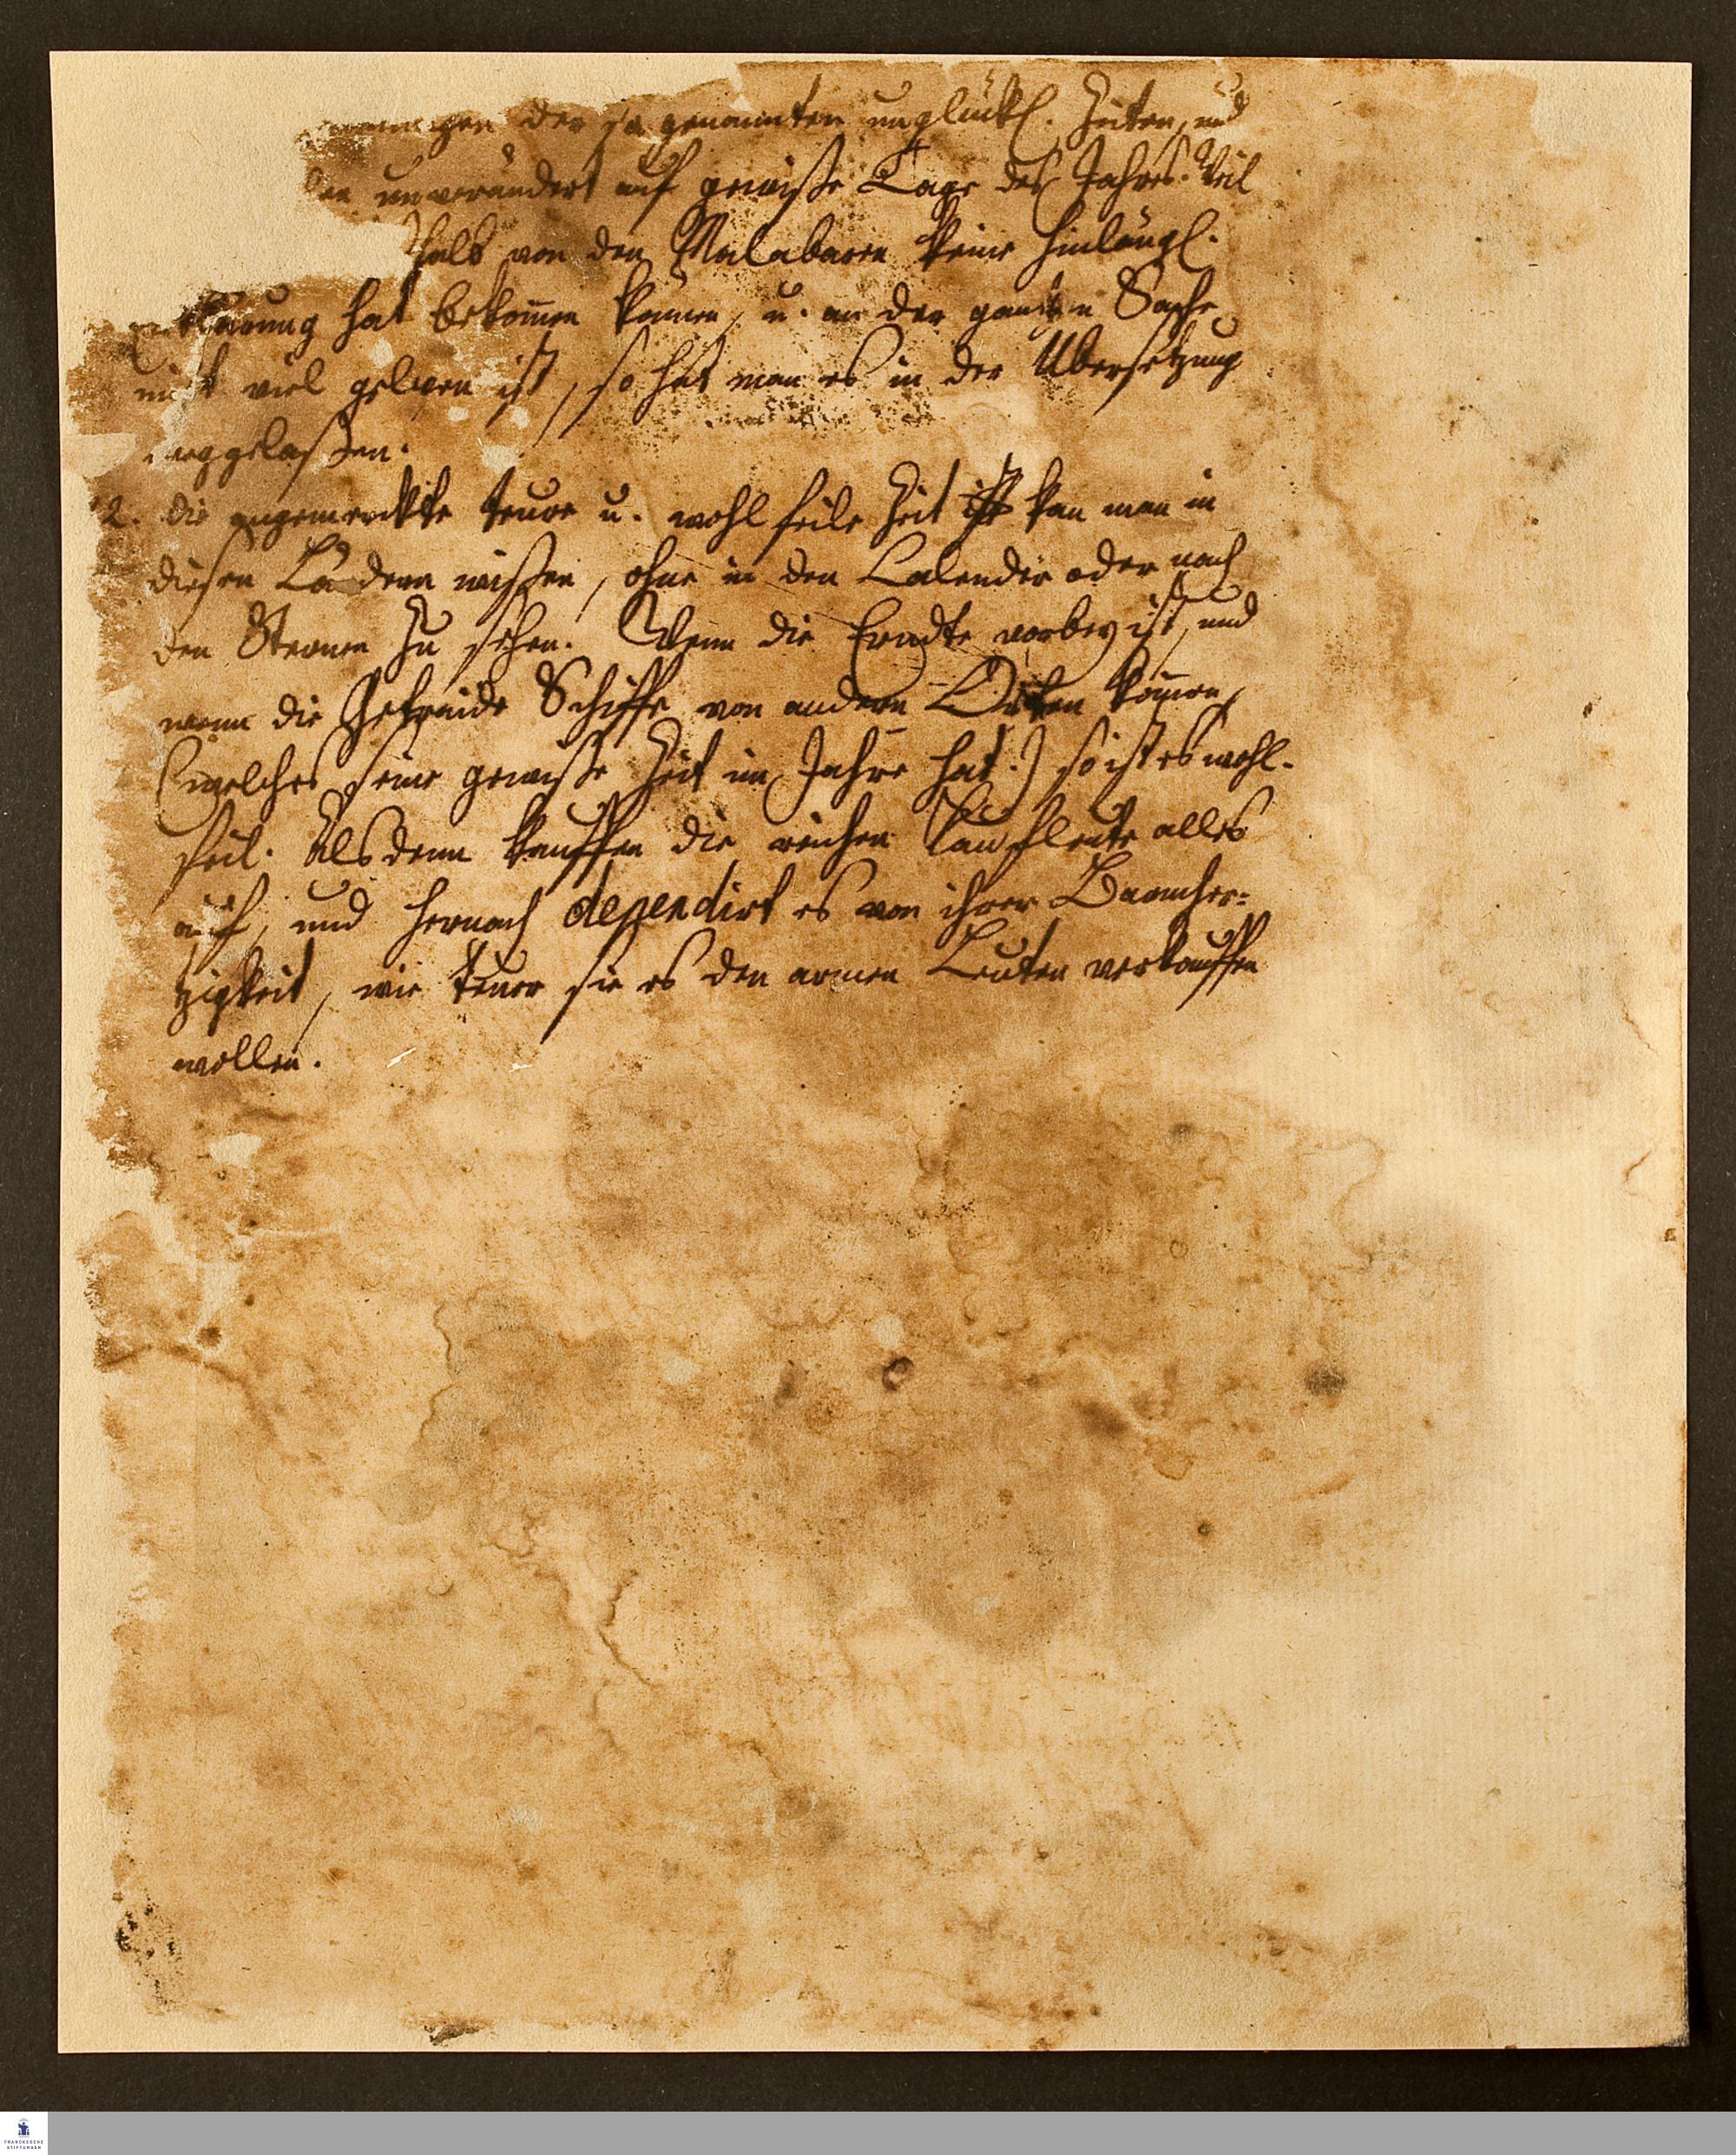 der so genannten unglückl. Zeiten, und
unverändert auf gewiße Tage des Jahres. Weil
halb von den Malabaren keine hinlängl.
Erklärung hat bekom̄en können, u. an der gantzen Sache
nicht viel gelegen ist, so hat man es in der Übersetzung
weggelaßen.
2. die angemerckte teure u. wohlfeile Zeit kan man in
diesen Ländern wißen, ohne in den Calender oder nach
den Sternen zu sehen. Wenn die Erndte vorbey ist, und
wenn die Getraide Schiffe von andern Orten kom̄en,
(welches seine gewiße Zeit im Jahre hat.) so ist es wohl-
feil. Alsdenn kauffen die reichen Kaufleute alles
auf, und hernach dependirt es von ihrer Barmher:
zigkeit, wie teuer sie es den armen Leuten verkauffen
wollen.
FRANCKESCHE
STIFTUNGEN